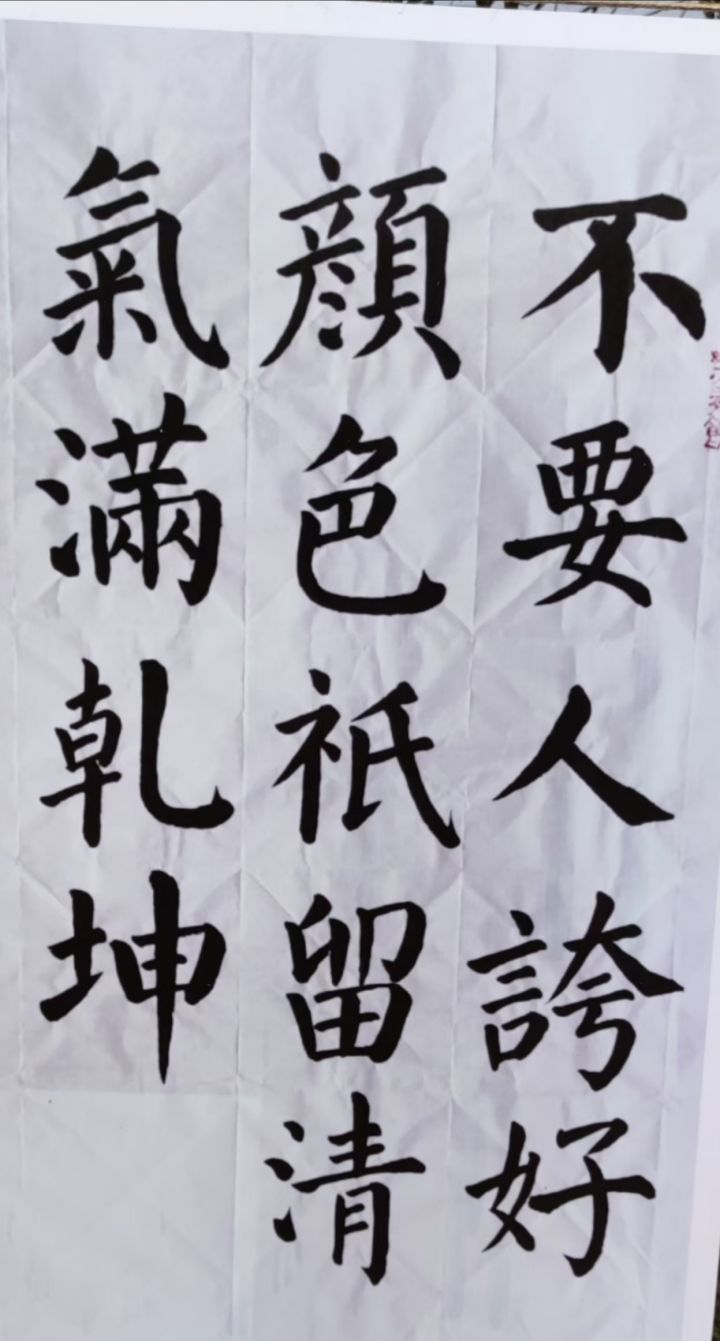 不要人誇好
顔色祇留清
氣滿乾坤